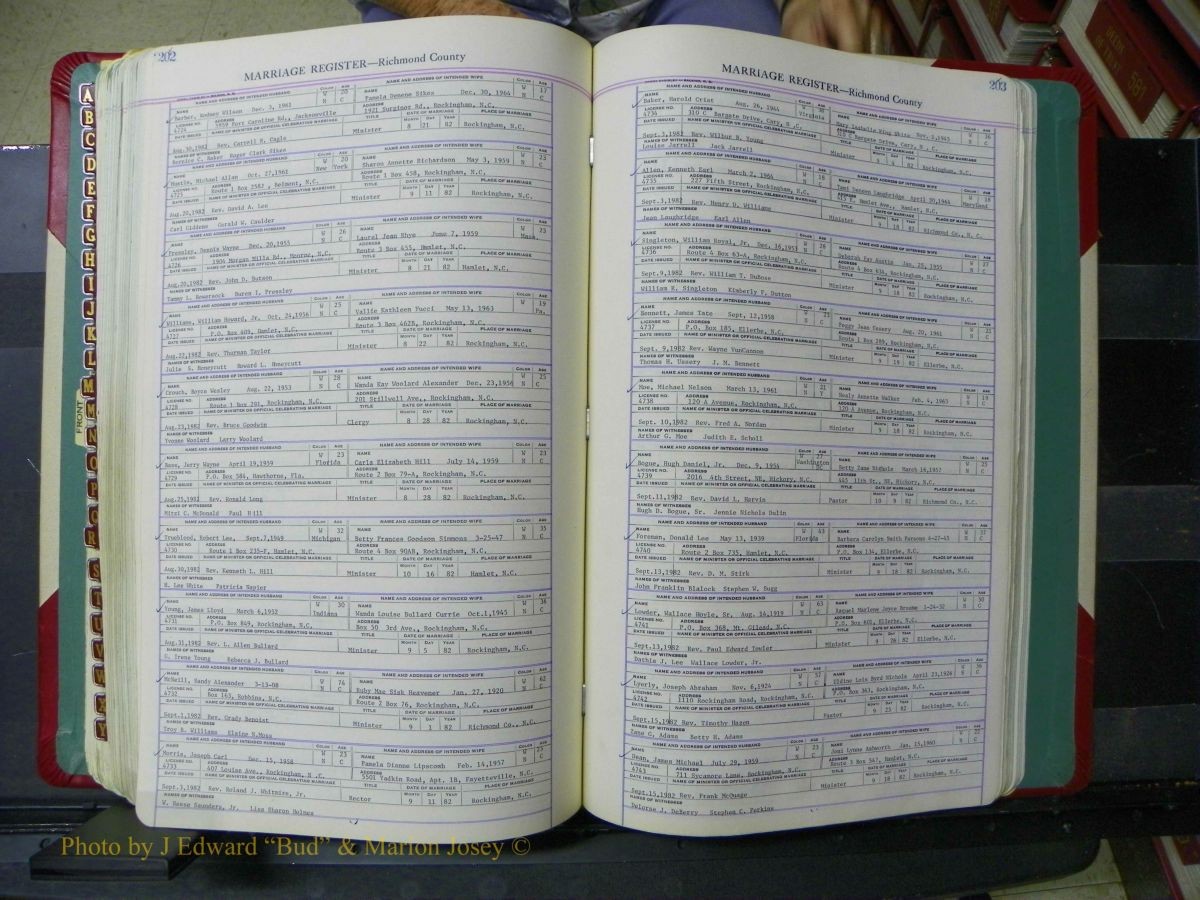 202
MARRIAGE REGISTER—Richmond County
NAME AND ADDRESS OF INTENDED HUSBAND COLOR AGE NAME AND ADDRESS OF INTENDED WIFE COLOR AGE
Barber, Rodney Wilson Dec. 3, 1961 W 20 N C Pamela Denene Sikes Dec. 30, 1964 W 17 N C
LICENSE NO. 4724 ADDRESS 5950 Fort Caroline Rd., Jacksonville ADDRESS 1921 Surginor Rd., Rockingham, N.C.
DATE ISSUED NAME OF MINISTER OR OFFICIAL CELEBRATING MARRIAGE TITLE DATE OF MARRIAGE PLACE OF MARRIAGE
Aug.20,1982 Rev. Carrell R. Cagle Minister 8 21 82 Rockingham, N.C.
NAMES OF WITNESSES
Bernice C. Baker Roger Clark Sikes
Hustin, Michael Allan Oct. 27,1961 W 20 New York Sharon Annette Richardson May 3, 1959 W 23 N C
4725 Route 1 Box 258J , Belmont, N.C. Route 1 Box 458, Rockingham, N.C.
Aug.20,1982 Rev. David A. Lee Minister 9 11 82 Rockingham, N.C.
Carl Giddens Gerald W. Caulder
Pressley, Dennis Wayne Dec. 20,1955 W 26 N C Laurel Jean Rhye June 7, 1959 W 23 Mass.
4726 1904 Morgan Mills Rd., Monroe, N.C. Route 3 Box 455, Hamlet, N.C.
Aug.20,1982 Rev. John D. Dutson Minister 8 21 82 Hamlet, N.C.
Tammy L. Bowersock Duren I. Pressley
Williams, William Howard, Jr. Oct. 24,1956 W 25 N C Vallie Kathleen Fucci May 13, 1963 W 19 Pa.
4727 P.O. Box 409, Hamlet, N.C. Route 3 Box 462B, Rockingham, N.C.
Aug.22,1982 Rev. Thurman Taylor Minister 8 22 82 Rockingham, N.C.
Julie S. Honeycutt Howard L. Honeycutt
Crouch, Boyce Wesley Aug. 22, 1953 W 28 N C Wanda Kay Woolard Alexander Dec. 23,1956 W 25 N C
4728 Route 1 Box 291, Rockingham, N.C. 201 Stillwell Ave., Rockingham, N.C.
Aug.23,1982 Rev. Bruce Goodwin Clergy 8 28 82 Rockingham, N.C.
Yvonne Woolard Larry Woolard
Bass, Jerry Wayne April 19,1959 W 23 Florida Carla Elizabeth Hill July 14, 1959 W 23 N C
4729 P.O. Box 584, Hawthorne, Fla. Route 2 Box 79-A, Rockingham, N.C.
Aug.25,1982 Rev. Ronald Long Minister 8 28 82 Rockingham, N.C.
Mitzi C. McDonald Paul Hill
Trueblood, Robert Lee, Sept.7,1949 W 32 Michigan Betty Frances Goodson Simmons 3-25-47 W 35 N C
4730 Route 1 Box 235-F, Hamlet, N.C. Route 4 Box 904B, Rockingham, N.C.
Aug.30,1982 Rev. Kenneth L. Hill Minister 10 16 82 Hamlet, N.C.
H. Lee White Patricia Napier
Young, James Lloyd March 6,1952 W 30 Indiana Wanda Louise Bullard Currie Oct.1,1945 W 36 N C
4731 P.O. Box 849, Rockingham, N.C. Box 50 3rd Ave., Rockingham, N.C.
Aug.31,1982 Rev. L. Allen Bullard Minister 9 5 82 Rockingham, N.C.
G. Irene Young Rebecca J. Bullard
McNeill, Handy Alexander 3-13-08 W 74 N C Ruby Mae Sisk Heavener Jan. 27, 1920 W 62 N C
4732 Box 163, Robbins, N.C. Route 2 Box 76, Rockingham, N.C.
Sept.1,1982 Rev. Grady Benoist Minister 9 1 82 Richmond Co., N.C.
Troy B. Williams Elaine N.Moss
Morris, Joseph Carl Dec. 15, 1958 W 23 N C Pamela Dianne Lipscomb Feb. 14,1957 W 25 N C
4733 407 Louise Ave., Rockingham, N.C. 5501 Yadkin Road, Apt. 18, Fayetteville, N.C.
Sept.3,1982 Rev. Roland J. Whitmire, Jr. Rector 9 11 82 Rockingham, N.C.
W. Reese Saunders, Jr. Lisa Sharon Holmes
203
MARRIAGE REGISTER—Richmond County
Baker, Harold Crist Aug. 26, 1944 W 38 Virginia Mary Isabelle King White Nov. 2,1945 W 36 N C
4734 310 C Bargate Drive, Cary, N.C. 310 C Bargate Drive, Cary, N.C.
Sept.3,1982 Rev. Wilbur B. Young Minister 9 82 Rockingham, N.C.
Louise Jarrell Jack Jarrell
Allen, Kenneth Earl March 2, 1964 W 18 N C Tami Deneen Loughridge April 30,1964 W 18 Maryland
4735 227 Fifth Street, Rockingham, N.C. Hamlet Ave., Hamlet, N.C.
Sept.3,1982 Rev. Henry O. Williams Minister 9 18 82 Richmond Co., N.C.
Jean Loughridge Earl Allen
Singleton, William Royal, Jr. Dec. 16,1953 W 28 N C Deborah Fay Austin Jan. 25, 1955 W 27 N C
4736 Route 4 Box 63-A, Rockingham, N.C. Route 4 Box 63A, Rockingham, N.C.
Sept.9,1982 Rev. William T. DuBose Minister 9 18 82 Rockingham, N.C.
William R. Singleton Kimberly F. Dutton
Bennett, James Tate Sept. 12,1958 W 23 N C Peggy Jean Ussery Aug. 20, 1961
4737 P.O. Box 185, Ellerbe, N.C. Route 1 Box 289, Rockingham, N.C.
Sept. 9,1982 Rev. Wayne VunCannon Minister 9 19 82 Ellerbe, N.C.
Thomas H. Ussery J. M. Bennett
Moe, Michael Nelson March 13, 1961 W 21 N Y Nealy Annette Walker Feb. 4, 1963 W 19 N C
4738 120 A Avenue, Rockingham, N.C. 120 A Avenue, Rockingham, N.C.
Sept. 10,1982 Rev. Fred A. Nordan Minister 9 18 82 Rockingham, N.C.
Arthur G. Moe Judith E. Scholl
Bogue, Hugh Daniel, Jr. Dec. 9, 1954 W 27 Washington DC Betty Zane Nichols March 16,1957 W 25 N C
4739 2016 4th Street, NE, Hickory, N.C. 445 11th St., NE, Hickory, N.C.
Sept.11,1982 Rev. David L. Harvin Pastor 10 9 82 Richmond Co., N.C.
Hugh D. Bogue, Sr. Jennie Nichols Dulin
Foreman, Donald Lee May 13, 1939 W 43 Florida Barbara Carolyn Smith Parsons 4-27-45 W 37 N C
4740 Route 2 Box 735, Hamlet, N.C. P.O. Box 134, Ellerbe, N.C.
Sept.13,1982 Rev. D. M. Stirk Minister 9 18 82 Rockingham, N.C.
John Franklin Blalock Stephen W. Bugg
Lowder, Wallace Hoyle, Sr. Aug. 14,1919 W 63 N C Raquel Marlene Joyce Broome 1-24-32 W 50 N C
4741 P.O. Box 368, Mt. Gilead, N.C. P.O. Box 602, Ellerbe, N.C.
Sept.13,1982 Rev. Paul Edward Towler Minister 9 28 82 Ellerbe, N.C.
Dathia J. Lee Wallace Lowder, Jr.
Lyerly, Joseph Abraham Nov. 6,1924 W 57 N C Eldine Lois Byrd Nichols April 23,1926 W 56 N C
4742 1110 Rockingham Road, Rockingham, N.C. P.O. Box 363, Rockingham, N.C.
Sept.15,1982 Rev. Timothy Hazen Pastor 9 25 82 Rockingham, N.C.
Zane G. Adams Betty H. Adams
Dean, James Michael July 29, 1959 W 23 N C Joni Lynne Ashworth Jan. 15,1960 W 22 N C
4743 711 Sycamore Lane, Rockingham, N.C. Route 3 Box 347, Hamlet, N.C.
Sept.15,1982 Rev. Frank McQuage Minister 9 18 82 Rockingham, N.C.
Delorse J. DeBerry Stephen C. Perkins
A
B
C
D
E
F
G
H
I
J
K
L
M
FRONT
N
O
P
R
S
T
U
V
W
Y
DEEDS
561
Photo by J Edward “Bud” & Marion Josey ©